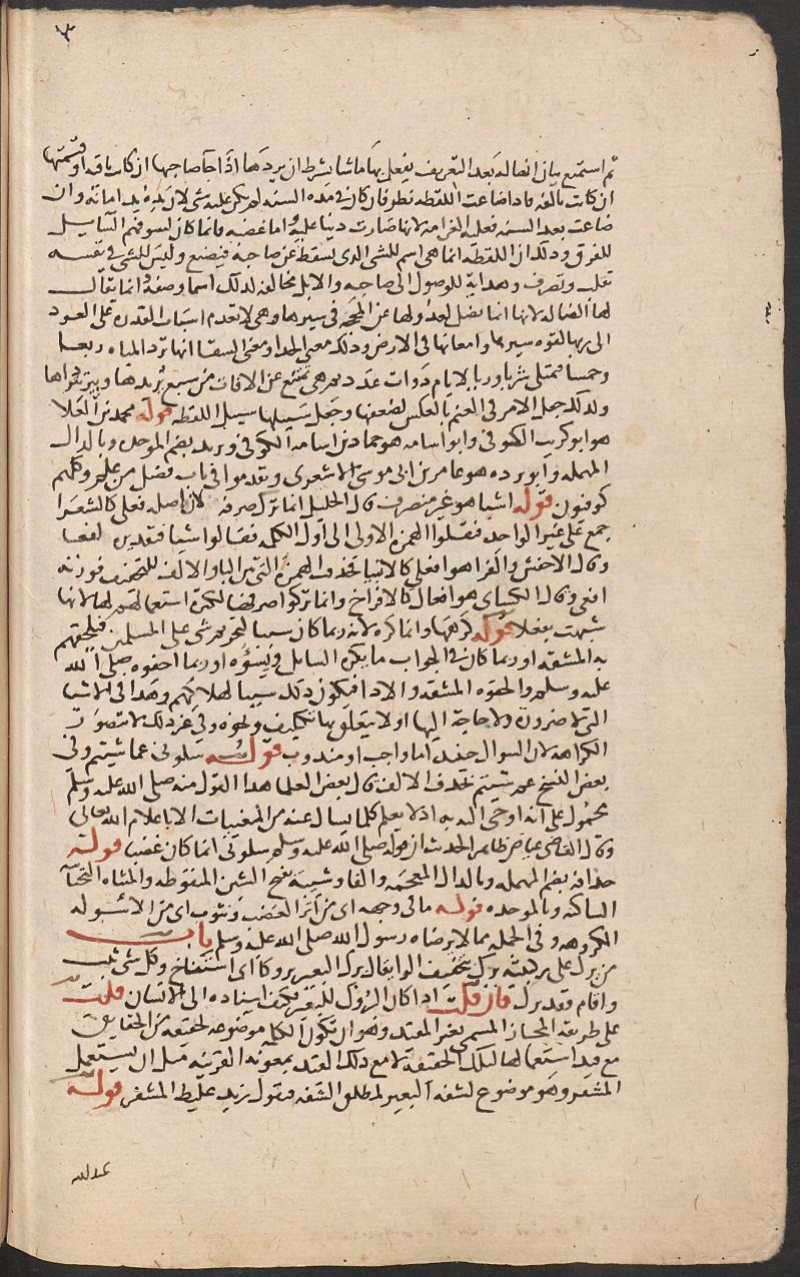 ثم استمتع بيان انها له بعد التعريف يفعل بها ما شا بشرط ان يردها اذا جا صاحبها ان كانت باقيه او قيمتها
ان كانت تالفه فاذا ضاعت اللقطه نظر فان كان في مده السنه لم يكن عليه شي لان يده يد امانه وان
ضاعت بعد السنه فعليه الغرامه لانها صارت دينا عليه واما غضبه فانما كان لسو فهم السايل
للفرق وذلك ان اللقطه انما هي اسم للشي الذي يسقط عن صاحبه فيضيع وليس للشي في نفسه
تقلب وتصرف وهدايه للوصول الى صاحبه والابل مخالفه لذلك اسما وصفه وانما يقال
لها الضاله لانها انما تضل لعدولها عن المحجه في سيرها وهي لا تعدم اسباب القدره على العود
الى ربها لقوه سيرها وامعانها في الارض وذلك معنى الحذا ومعنى السقا انها ترد المياه ربعا
وخمسا فتمتلي شربا وريا لايام ذوات عدد ثم هي تمتنع عن الافات من سبع يريدها وبير تتردا ها
ولذلك جعل الامر في الغنم بالعكس لضعفها وجعل سبيلها سبيل اللقطه قوله محمد بن العلا
هو ابو كريب الكوفي وابو اسامه هو حماد بن اسامه الكوفي وبريد بضم الموحده وبالدال
المهمله وابو برده هو عامر بن ابي موسى الاشعري وتقدموا في باب فضل من علم وكلهم
كوفيون قوله اشيا هو غير منصرف قال الخليل انما ترك صرفه لان اصله فعلى كالشعرا
جمع على غير الواحد فنقلوا الهمزه الاولى الى اول الكلمه فقالوا اشيا فتقديره لفعا
وقال الاخفش والفرا هو افعلى كالانبيا فحذفت الهمزه التي بين اليا والالف للتخفيف فوزنه
افعى وقال الكسائي هو افعال كالافراخ وانما تركوا صرفها لكثرة استعمالهم لها لانها
شبهت بفعلا قوله كرهها وانما كره لانه ربما كان سببا لتحريم شي على المسلمين فيلحقهم
به المشقه او ربما كان في الجواب ما يكره السايل ويسؤه او ربما احفوه صلى الله
عليه وسلم والحقوه المشقه والاذا فيكون ذلك سببا لهلاكهم وهذا في الاشيا
التي لا ضروره ولا حاجة اليها او لا يتعلق بها تكليف ونحوه وفي غير ذلك لا تتصور
الكراهه لان السوال حينيذ اما واجب او مندوب قوله سلوني عما شيتم وفي
بعض النسخ عم شيتم بحذف الالف قال بعض العلما هذا القول منه صلى الله عليه وسلم
محمول على انه اوحي اليه به اذ لا يعلم كلما يسال عنه من المغيبات الا باعلام الله تعالى
وقال القاضي عياض ظاهر الحديث ان قوله صلى الله عليه وسلم سلوني انما كان غضبا قوله
حذافه بضم المهمله وبالذال المعجمه والفا وشيبه بفتح الشين المنقوطه والمثناه التحتانيه
الساكنه وبالموحده قوله ما في وجهه اي من اثر الغضب ونتوب اي من الاسوله
المكروهه وفي الجمله مما لا يرضاه رسول الله صلى الله عليه وسلم باب
من برك على ركبتيه برك بتخفيف الرا يقال برك البعير بروكا اي استناخ وكل شي ثبت
واقام فقد برك فان قلت اذا كان البروك للبعير فكيف اسناده الى الانسان قلت
على طريقة المجاز المسمى بغير المقيد وهو ان تكون الكلمه موضوعه لحقيقه من الحقايق
مع قيد استعمالها لتلك الحقيقة لا مع ذلك القيد بمعونة القرينه مثل ان يستعمل
المشفر وهو موضوع لشفه البعير لمطلق الشفه فيقول زيد غليظ المشفر قوله
عبد الله